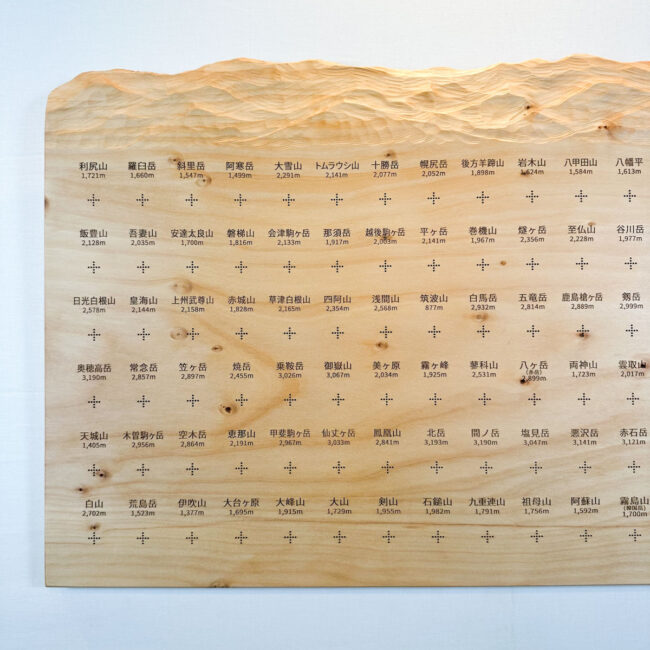 利尻山 羅臼岳 斜里岳 阿寒岳 大雪山 トムラウシ山 十勝岳 幌尻岳 後方羊蹄山 岩木山 八甲田山 八幡平
1,721m 1,660m 1,547m 1,499m 2,291m 2,141m 2,077m 2,052m 1,898m 1,624m 1,584m 1,613m
飯豊山 吾妻山 安達太良山 磐梯山 会津駒ヶ岳 那須岳 越後駒ヶ岳 平ヶ岳 巻機山 燧ヶ岳 至仏山 谷川岳
2,128m 2,035m 1,700m 1,816m 2,133m 1,917m 2,003m 2,141m 1,967m 2,356m 2,228m 1,977m
日光白根山 皇海山 上州武尊山 赤城山 草津白根山 四阿山 浅間山 筑波山 白馬岳 五竜岳 鹿島槍ヶ岳 剱岳
2,578m 2,144m 2,158m 1,828m 2,165m 2,354m 2,568m 877m 2,932m 2,814m 2,889m 2,999m
奥穂高岳 常念岳 笠ヶ岳 焼岳 乗鞍岳 御嶽山 美ヶ原 霧ヶ峰 蓼科山 八ヶ岳 両神山 雲取山
(赤岳)
3,190m 2,857m 2,897m 2,455m 3,026m 3,067m 2,034m 1,925m 2,531m 2,899m 1,723m 2,017m
天城山 木曽駒ヶ岳 空木岳 恵那山 甲斐駒ヶ岳 仙丈ヶ岳 鳳凰山 北岳 間ノ岳 塩見岳 悪沢岳 赤石岳
1,405m 2,956m 2,864m 2,191m 2,967m 3,033m 2,841m 3,193m 3,190m 3,047m 3,141m 3,121m
白山 荒島岳 伊吹山 大台ヶ原 大峰山 大山 剣山 石鎚山 九重連山 祖母山 阿蘇山 霧島山
(韓国岳)
2,702m 1,523m 1,377m 1,695m 1,915m 1,729m 1,955m 1,982m 1,791m 1,756m 1,592m 1,700m